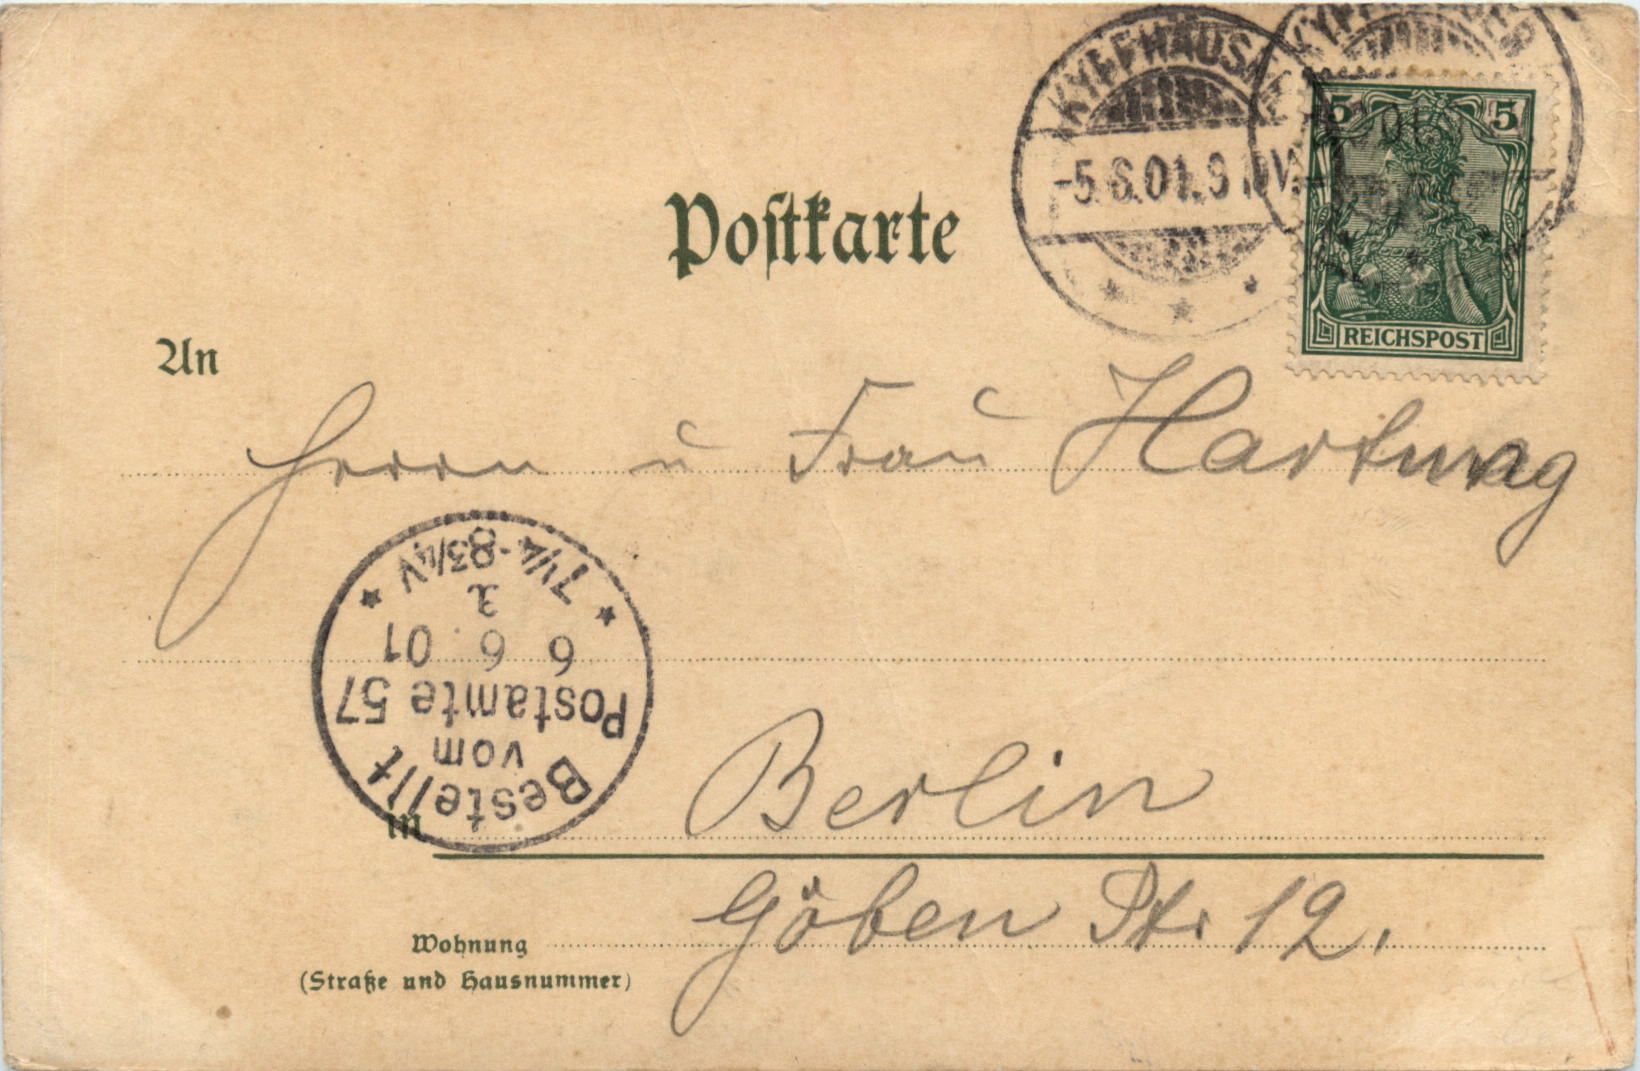 KYFFHÄUSER
-5.6.01.9
5 5
REICHSPOST
Postkarte
An
Herrn u Frau Hartwag
7¼-8¾V
6 6 01
Postamte 57
vom
Bestellt
in Berlin
Göben Str 12.
Wohnung
(Straße und Hausnummer)